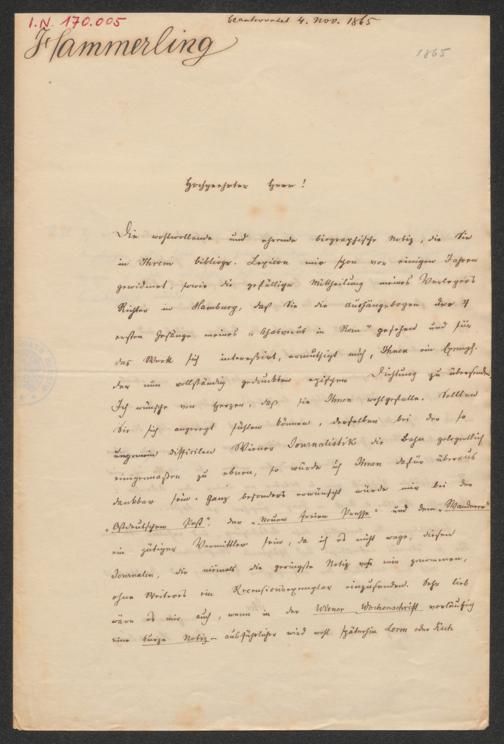 I.N. 170.005
beantwortet 4. Nov. 1865
Hammerling
1865
Hochgeehrter Herr!
Die wohlwollende und ehrende biographische Notiz, die Sie
in Ihrem bibliogr. Lexicon mir schon vor einigen Jahren
gewidmet, sowie die gefällige Mittheilung meines Verlegers
Richter in Hamburg, daß Sie die Aushängebogen der
ersten Gesänge meines „Ahasverus in Rom" gesehen und für
das Werk sich interessirt, ermuthigt mich, Ihnen ein Exempl.
der nun vollständig gedruckten epischen Dichtung zu übersenden.
Ich wünsche von Herzen, daß sie Ihnen wohlgefalle. Sollten
Sie sich angeregt fühlen können, derselben bei der so
ungemein difficilen Wiener Journalistik die Bahn gelegentlich
einigermaßen zu ebnen, so würde ich Ihnen dafür überaus
dankbar sein. Ganz besonders erwünscht würde mir bei der
„Ostdeutschen Post", der „Neuen freien Presse" und dem „Wanderer"
ein gütiger Vermittler sein, da ich es nicht wage, diesen
Journalen, die niemals die geringste Notiz von mir genommen,
ohne Weiteres ein Recensionsexemplar einzusenden. Sehr lieb
wäre es mir auch, wenn in der Wiener Wochenschrift vorläufig
eine kurze Notiz – ausführlicher wird wohl späterhin Lorm oder